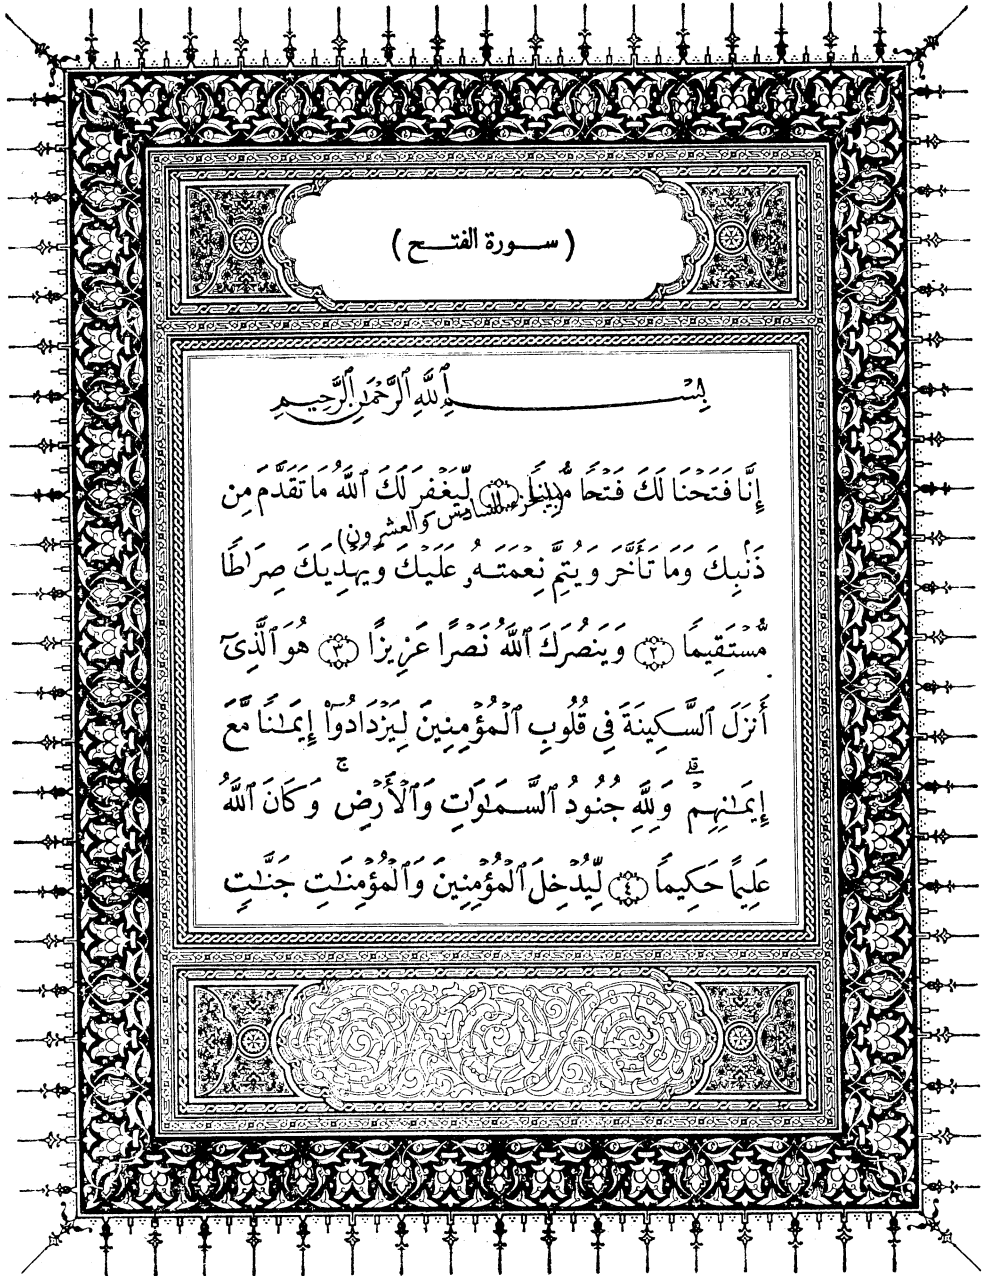 ( ســورة الفتــح )
بِسْــــــــمِ ٱللَّهِ ٱلرَّحْمَٰنِ ٱلرَّحِيمِ
إِنَّا فَتَحْنَا لَكَ فَتْحًا مُّبِينًا ١ لِّيَغْفِرَ لَكَ ٱللَّهُ مَا تَقَدَّمَ مِن
(الجزء السادس والعشرون)
ذَنۢبِكَ وَمَا تَأَخَّرَ وَيُتِمَّ نِعْمَتَهُۥ عَلَيْكَ وَيَهْدِيَكَ صِرَٰطًا
مُّسْتَقِيمًا ٢ وَيَنصُرَكَ ٱللَّهُ نَصْرًا عَزِيزًا ٣ هُوَ ٱلَّذِىٓ
أَنزَلَ ٱلسَّكِينَةَ فِى قُلُوبِ ٱلْمُؤْمِنِينَ لِيَزْدَادُوٓا۟ إِيمَٰنًا مَّعَ
إِيمَٰنِهِمْ ۗ وَلِلَّهِ جُنُودُ ٱلسَّمَٰوَٰتِ وَٱلْأَرْضِ ۚ وَكَانَ ٱللَّهُ
عَلِيمًا حَكِيمًا ٤ لِّيُدْخِلَ ٱلْمُؤْمِنِينَ وَٱلْمُؤْمِنَٰتِ جَنَّٰتٍ